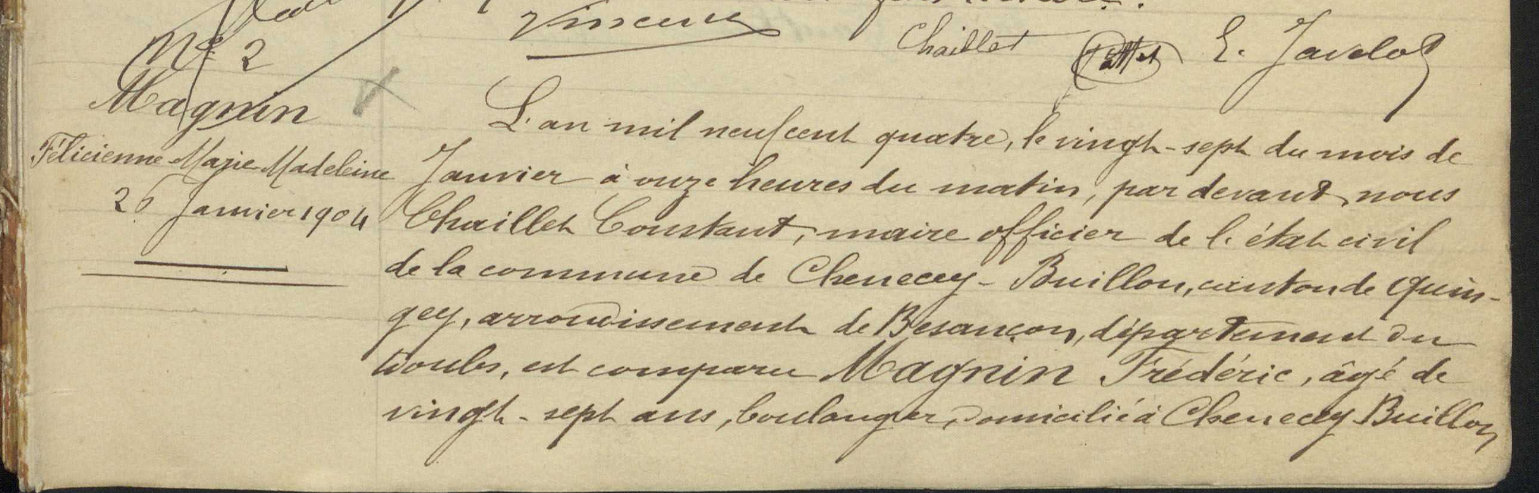 Vincent
Chaillet
E. Javelot
N° 2
Magnin
Félicienne Marie Madeleine
26 Janvier 1904
L'an mil neuf cent quatre, le vingt-sept du mois de
Janvier à onze heures du matin, par devant nous
Chaillet Constant, maire officier de l'état civil
de la commune de Chenecey-Buillon, canton de Quin-
gey, arrondissement de Besançon, département du
Doubs, est comparu Magnin Frédéric, âgé de
vingt-sept ans, boulanger, domicilié à Chenecey-Buillon